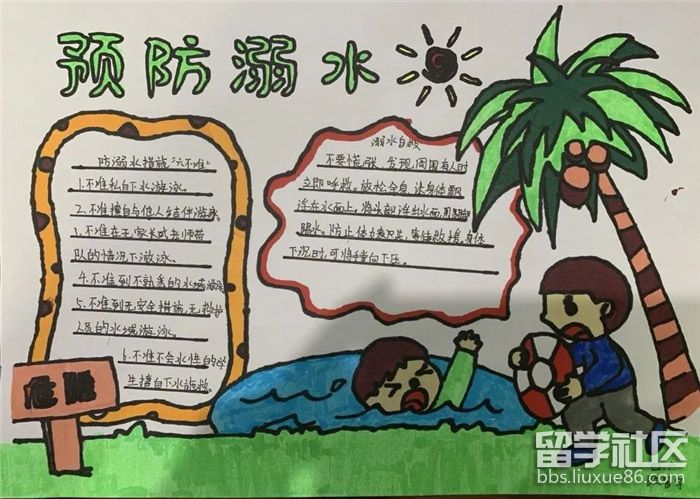 预防溺水
防溺水措施"六不准"
1.不准私自下水游泳。
2.不准擅自与他人结伴游泳。
3.不准在无家长或老师带
队的情况下游泳。
4.不准到不熟悉的水域游泳
5.不准到无安全措施,无救护
人员的水域游泳。
6.不准不会水性的学
生擅自下水施救。
溺水自救
不要慌张,发现周围有人时
立即呼救,放松全身,让身体飘
浮在水面上,将头部浮出水面,用脚
踢水。防止体力丧失,等待救援,身体
下沉时,可将
向下压。
危险
留学社区
bbs.liuxue86.com